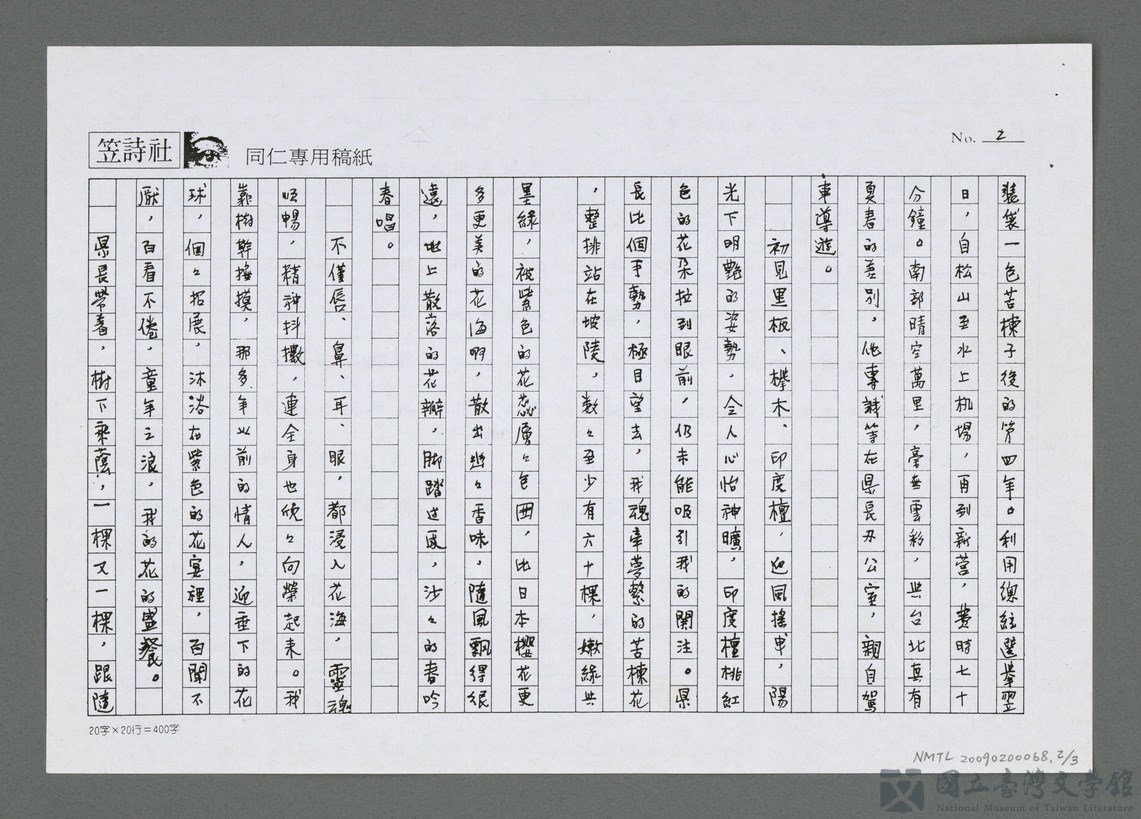 笠詩社
同仁專用稿紙
No. 2
裝袋一色苦楝子後的第四年。利用總統選舉翌
日，自松山至水上机場，再到新營，費時七十
分鐘。南部晴空萬里，毫無雲彩，與台北真有
夏書的差別，他專誠等在県長办公室，親自駕
車導遊。
初見黑板、欅木、印度檀，迎風搖曳，陽
光下明艷的姿勢，令人心怡神曠，印度檀桃紅
色的花朶拉到眼前，仍未能吸引我的関注。県
長比個手勢，極目望去，我魂牽夢繫的苦楝花
，整排站在坡陵，数々至少有六十棵，嫩綠與
墨綠，被紫色的花蕊層々包囲，比日本櫻花更
多更美的花海啊，散出幽々香味，隨風飄得很
遠，地上散落的花瓣，脚踏过度，沙々的春吟
春唱。
不僅唇、鼻、耳、眼，都浸入花海，靈魂
恒暢，精神抖擻，連全身也欣々向榮起来。我
靠樹幹撫摸，那多年以前的情人，迎垂下的花
球，個々招展，沐浴在紫色的花宴裡，百聞不
厭，百看不倦，童年之浪，我的花的盛餐。
県長帶着，樹下乘蔭，一棵又一棵，跟隨
20字×20行＝400字
NMTL 20090200068.2/3
國立臺灣文學館
National Museum of Taiwan Literature